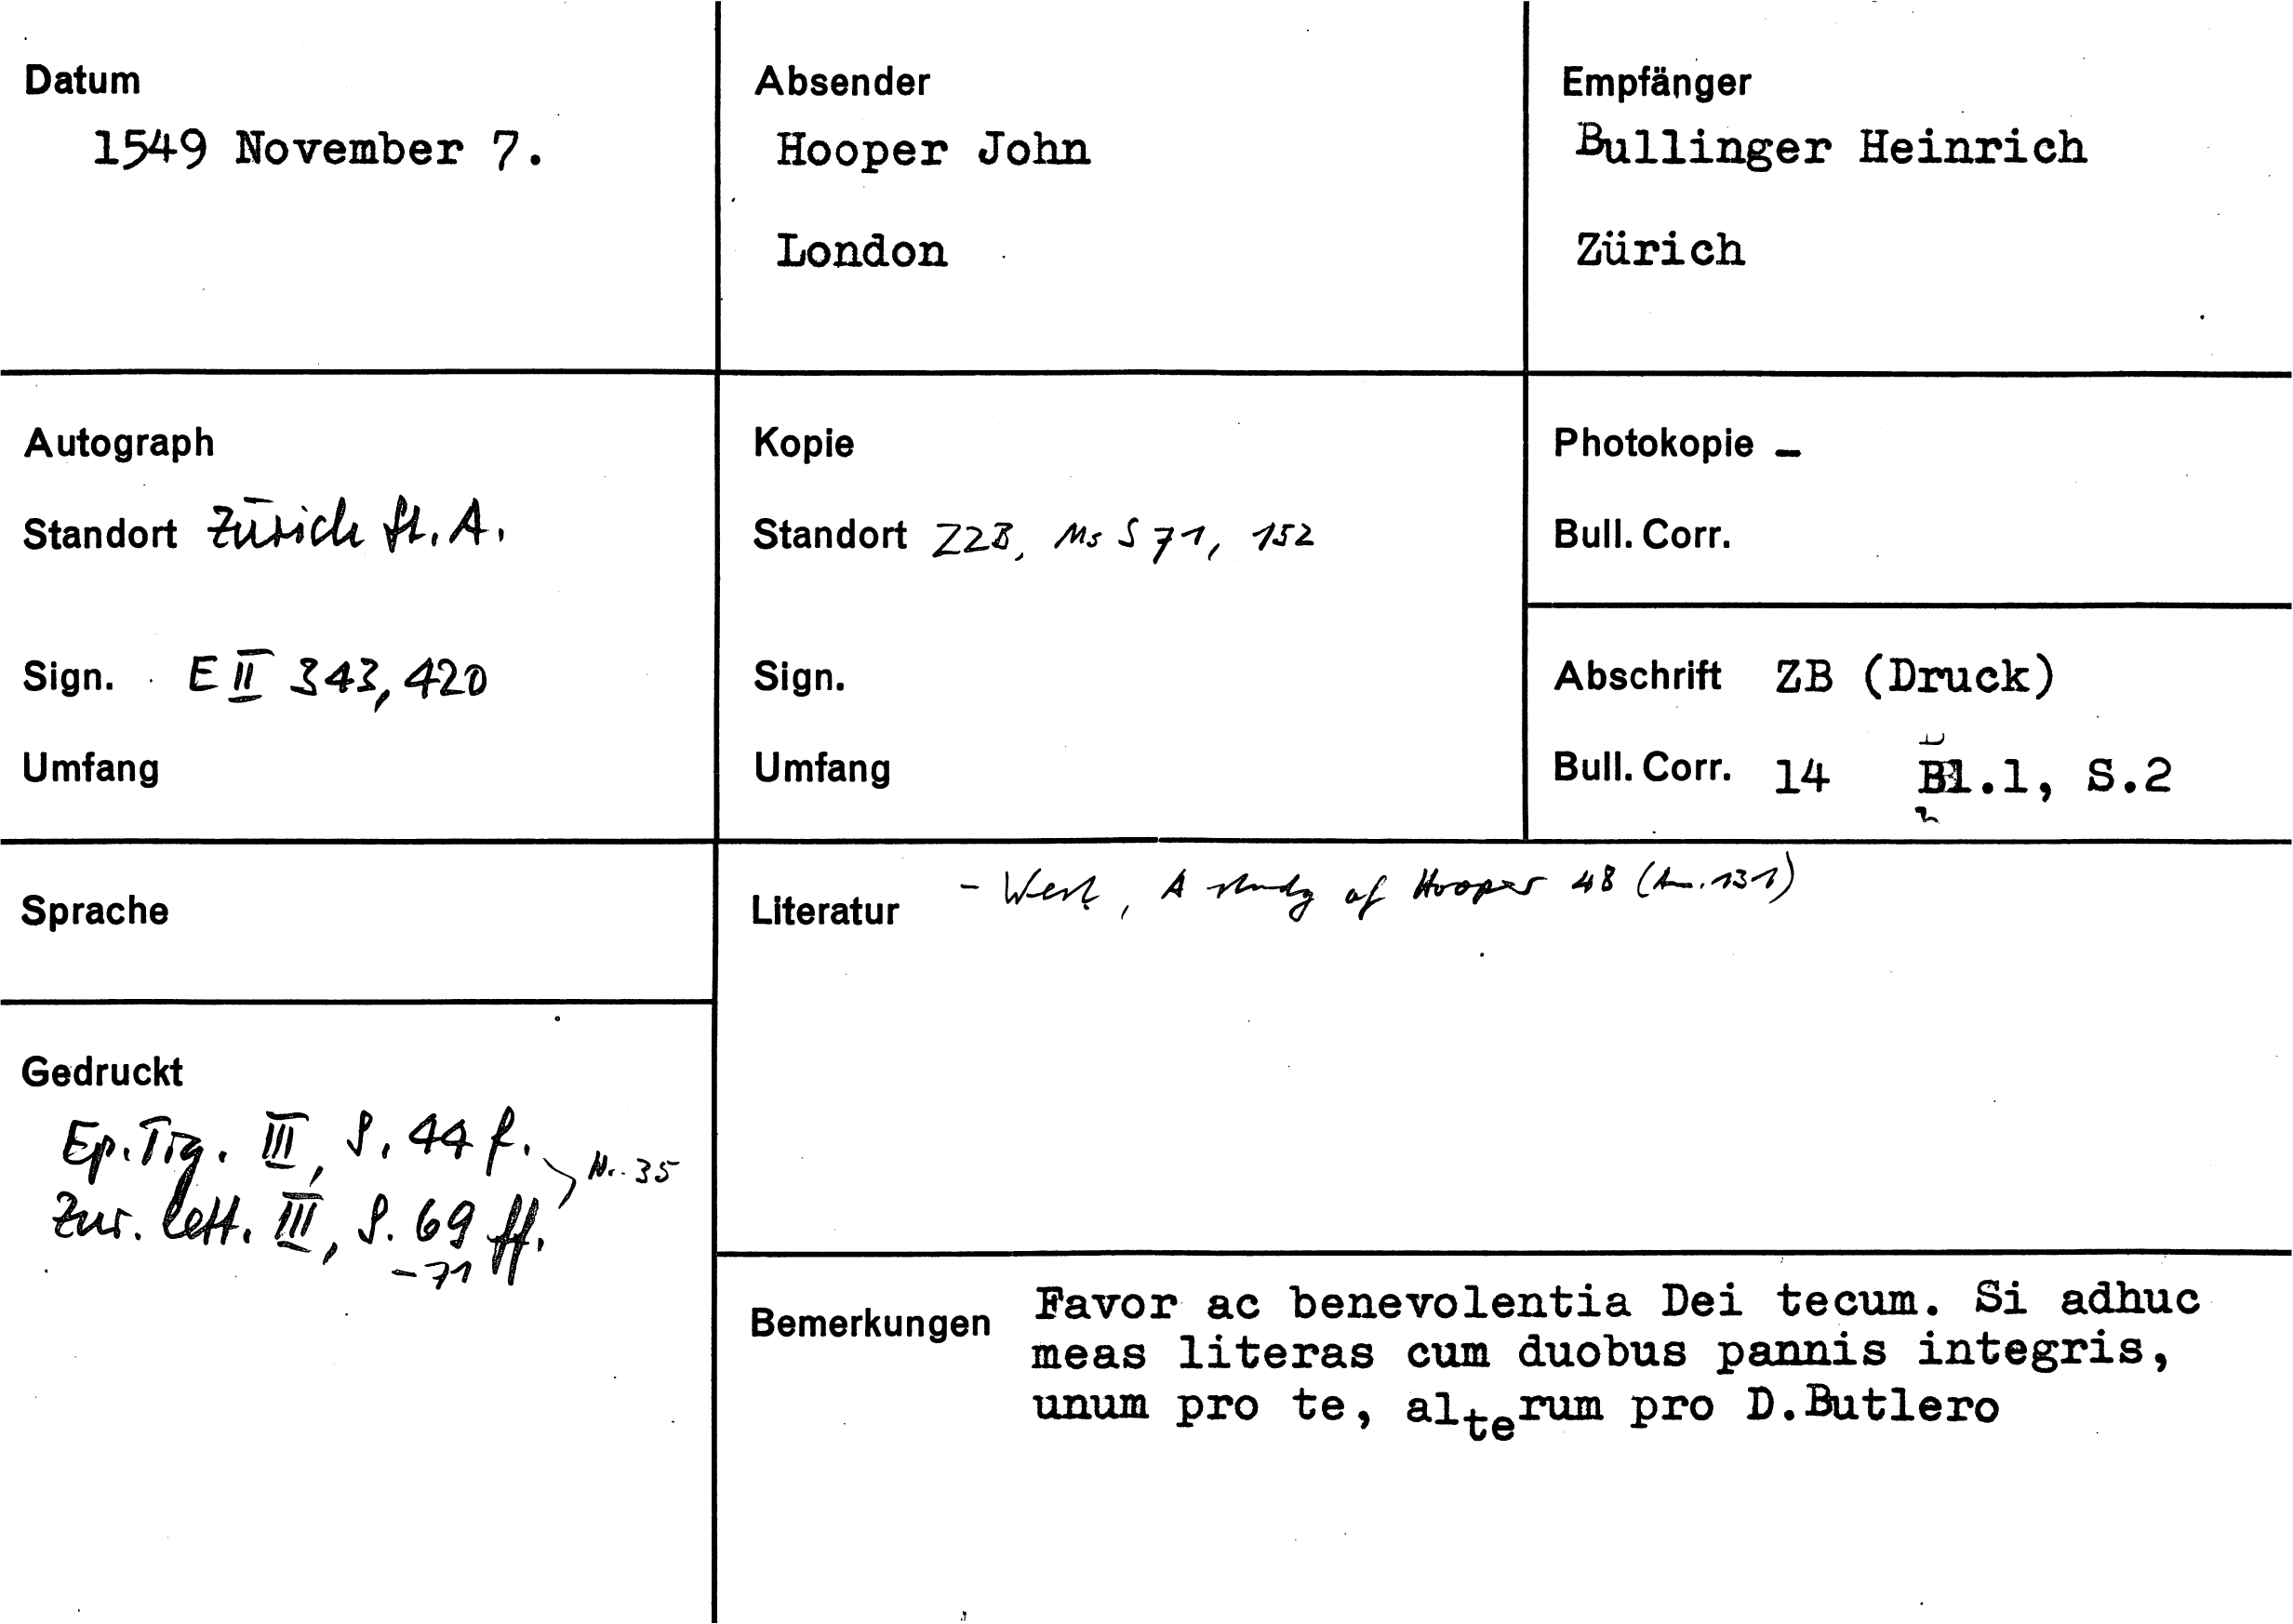 Datum
1549 November 7.
Absender
Hooper John
London
Empfänger
Bullinger Heinrich
Zürich
Autograph
Standort Zürich St. A.
Sign. E II 343, 420
Umfang
Kopie
Standort ZZB, Ms S 71, 152
Sign.
Umfang
Photokopie -
Bull. Corr.
Abschrift ZB (Druck)
Bull. Corr. 14 Bl.1, S.2
Sprache
Literatur - West, A study of Hooper 48 (Am. 131)
Gedruckt
Ep. Tig. III, S. 44 f.
Nr. 35
Zur. lett. III, S. 69 ff.
-71
Bemerkungen Favor ac benevolentia Dei tecum. Si adhuc
meas literas cum duobus pannis integris,
unum pro te, alterum pro D.Butlero